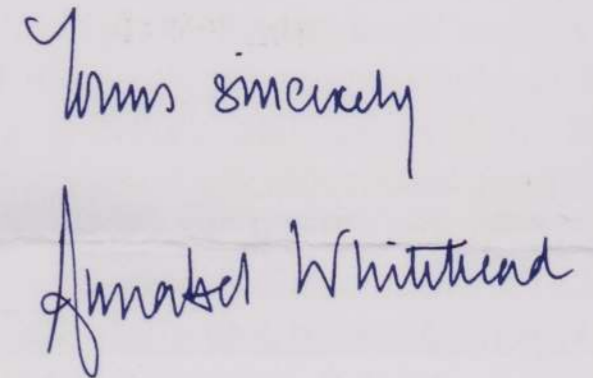 Yours sincerely
Annabel Whitehead